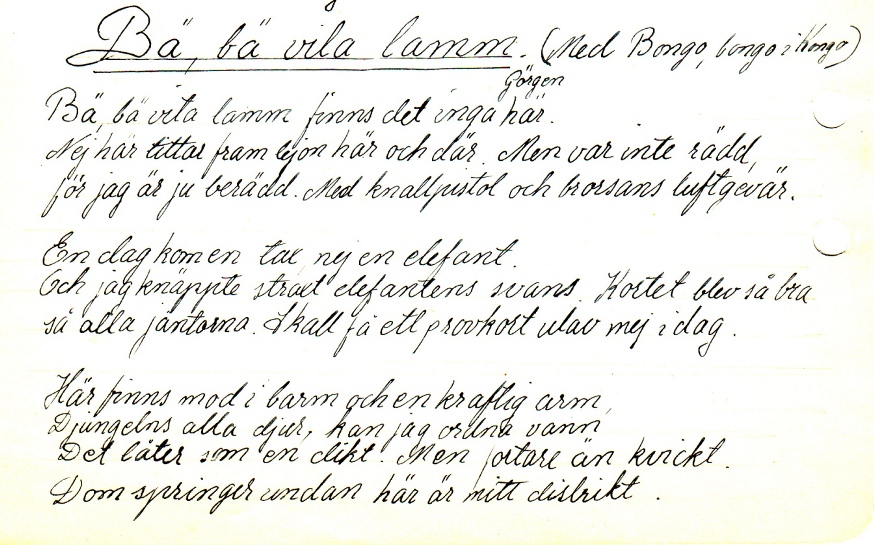 Bä, bä vita lamm. (Med Bongo, bongo i Kongo)
Görgen
Bä, bä vita lamm finns det inga här.
Nej här tittar fram lejon här och där. Men var inte rädd,
för jag är ju berädd. Med knallpistol och brorsans luftgevär.
En dag kom en tax, nej en elefant.
Och jag knäppte strax elefantens svans. Kortet blev så bra
så alla jäntorna. Skall få ett provkort utav mej i dag.
Här finns mod i barm och en kraftig arm,
Djungelns alla djur, kan jag ordna varm
Det låter som en dikt. Men fortare än kvickt.
Dom springer undan här är mitt distrikt.